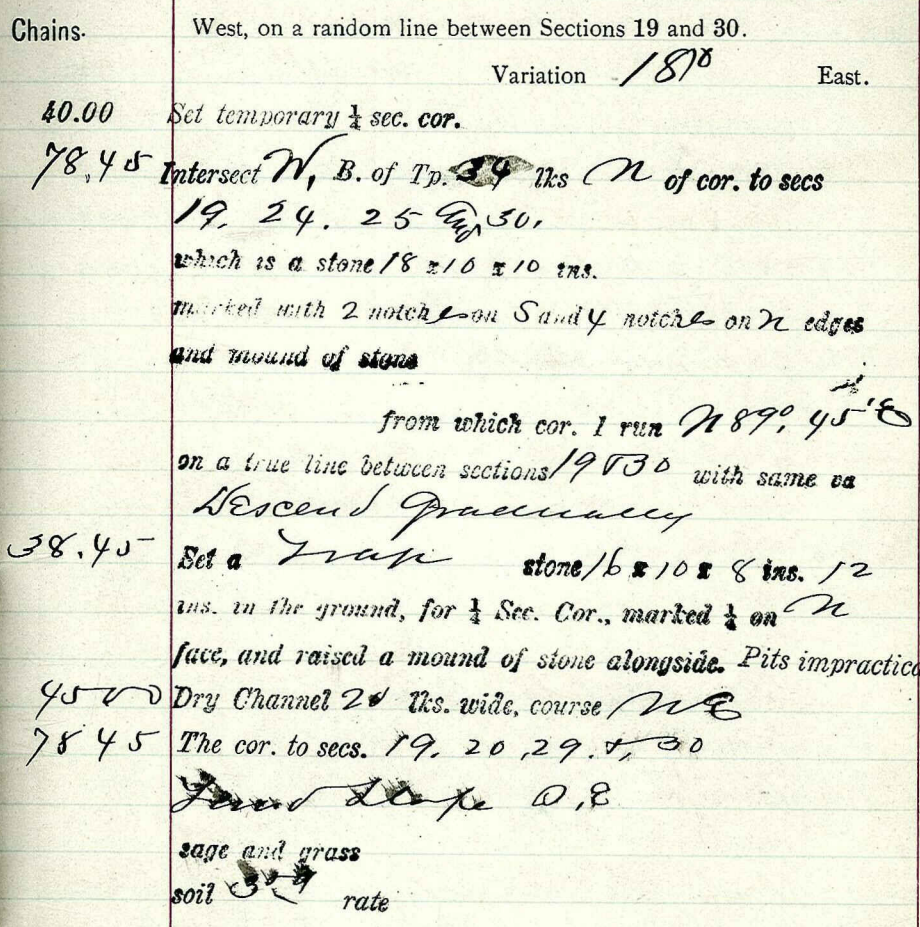 Chains. West, on a random line between Sections 19 and 30.
Variation 18° East.
40.00 Set temporary ¼ sec. cor.
78.45 Intersect W, B. of Tp. 34 lks N of cor. to secs
19, 24. 25 and 30.
which is a stone 18 x 10 x 10 ins.
marked with 2 notches on S and 4 notches on N edges
and mound of stone
from which cor. I run N 89°, 45' E
on a true line between sections 19 & 30 with same va
Descend Gradually
38.45 Set a Trap stone 16 x 10 x 8 ins. 12
ins. in the ground, for ¼ Sec. Cor., marked ¼ on N
face, and raised a mound of stone alongside. Pits impractica
45 00 Dry Channel lks. wide, course NE
78 45 The cor. to secs. 19, 20, 29 & 30
Land Slope
sage and grass
soil rate